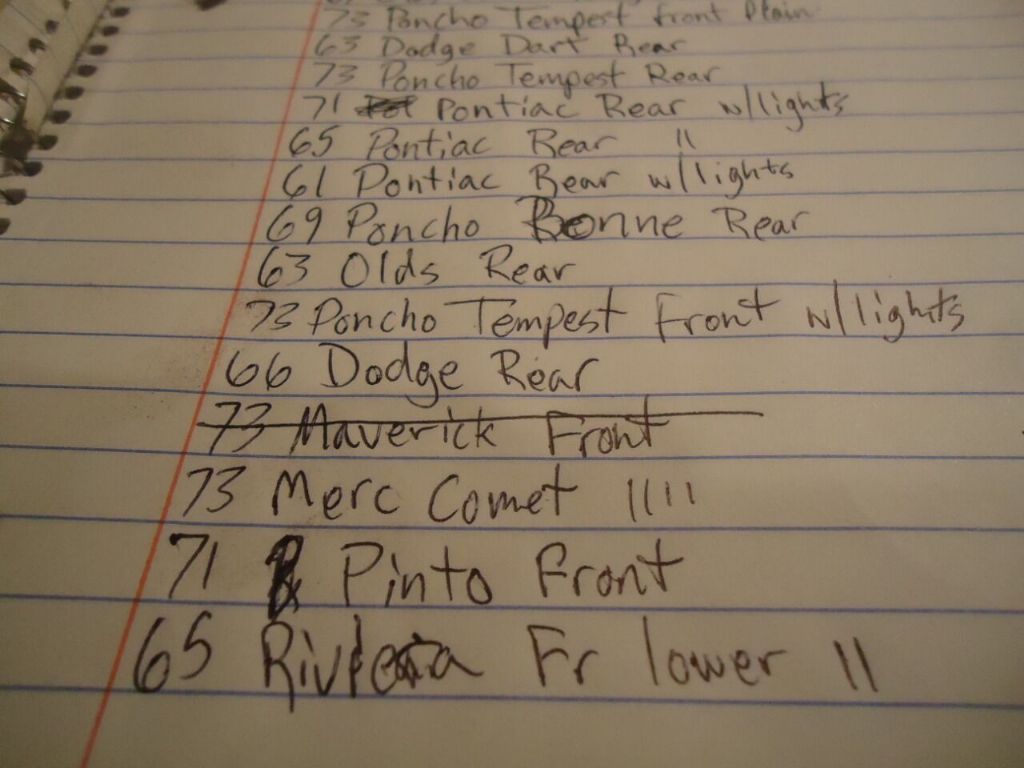 73 Poncho Tempest front Plain
63 Dodge Dart Rear
73 Poncho Tempest Rear
71 Pontiac Rear w/lights
65 Pontiac Rear "
61 Pontiac Rear w/lights
69 Poncho Bonne Rear
63 Olds Rear
73 Poncho Tempest Front w/lights
66 Dodge Rear
73 Maverick Front
73 Merc Comet ||||
71 Pinto Front
65 Riviera Fr lower ||